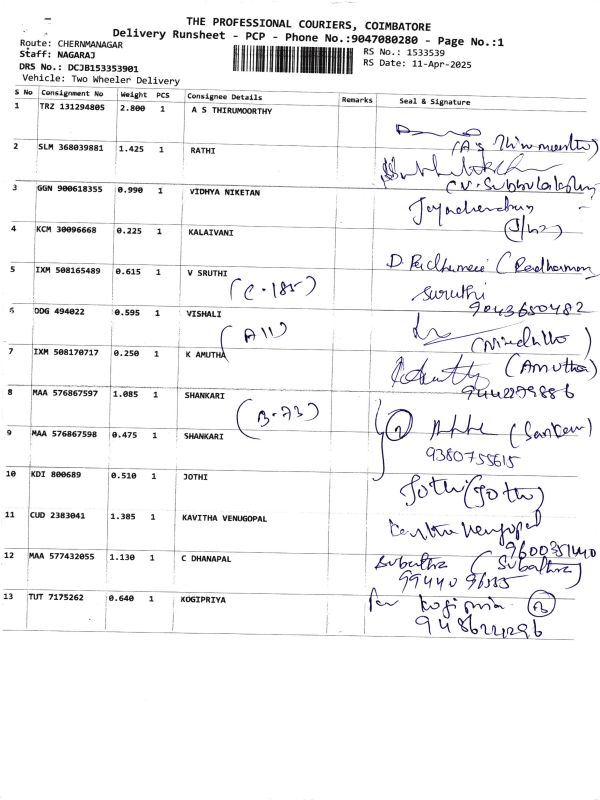 THE PROFESSIONAL COURIERS, COIMBATORE
Delivery Runsheet - PCP - Phone No.:9047080280 - Page No.:1
Route: CHERNMANAGAR
RS No.: 1533539
Staff: NAGARAJ
RS Date: 11-Apr-2025
DRS No.: DCJB153353901
Vehicle: Two Wheeler Delivery
S No Consignment No Weight PCS Consignee Details Remarks Seal & Signature
1 TRZ 131294805 2.800 1 A S THIRUMOORTHY
2 SLM 368039881 1.425 1 RATHI
3 GGN 900618355 0.990 1 VIDHYA NIKETAN
4 KCM 30096668 0.225 1 KALAIVANI
D.
5 IXM 508165489 0.615 1 V SRUTHI
(C-185) Suruthi
9043650482
6 DDG 494022 0.595 1 VISHALI
(A11)
7 IXM 508170717 0.250 1 K AMUTHA
(Amutha)
9442279886
8 MAA 576867597 1.085 1 SHANKARI
(B-73)
9 MAA 576867598 0.475 1 SHANKARI
9380755615
10 KDI 800689 0.510 1 JOTHI
Jothi (Jothi)
11 CUD 2383041 1.385 1 KAVITHA VENUGOPAL
9600351440
12 MAA 577432055 1.130 1 C DHANAPAL
Subathra (Subathra)
13 TUT 7175262 0.640 1 KOGIPRIYA